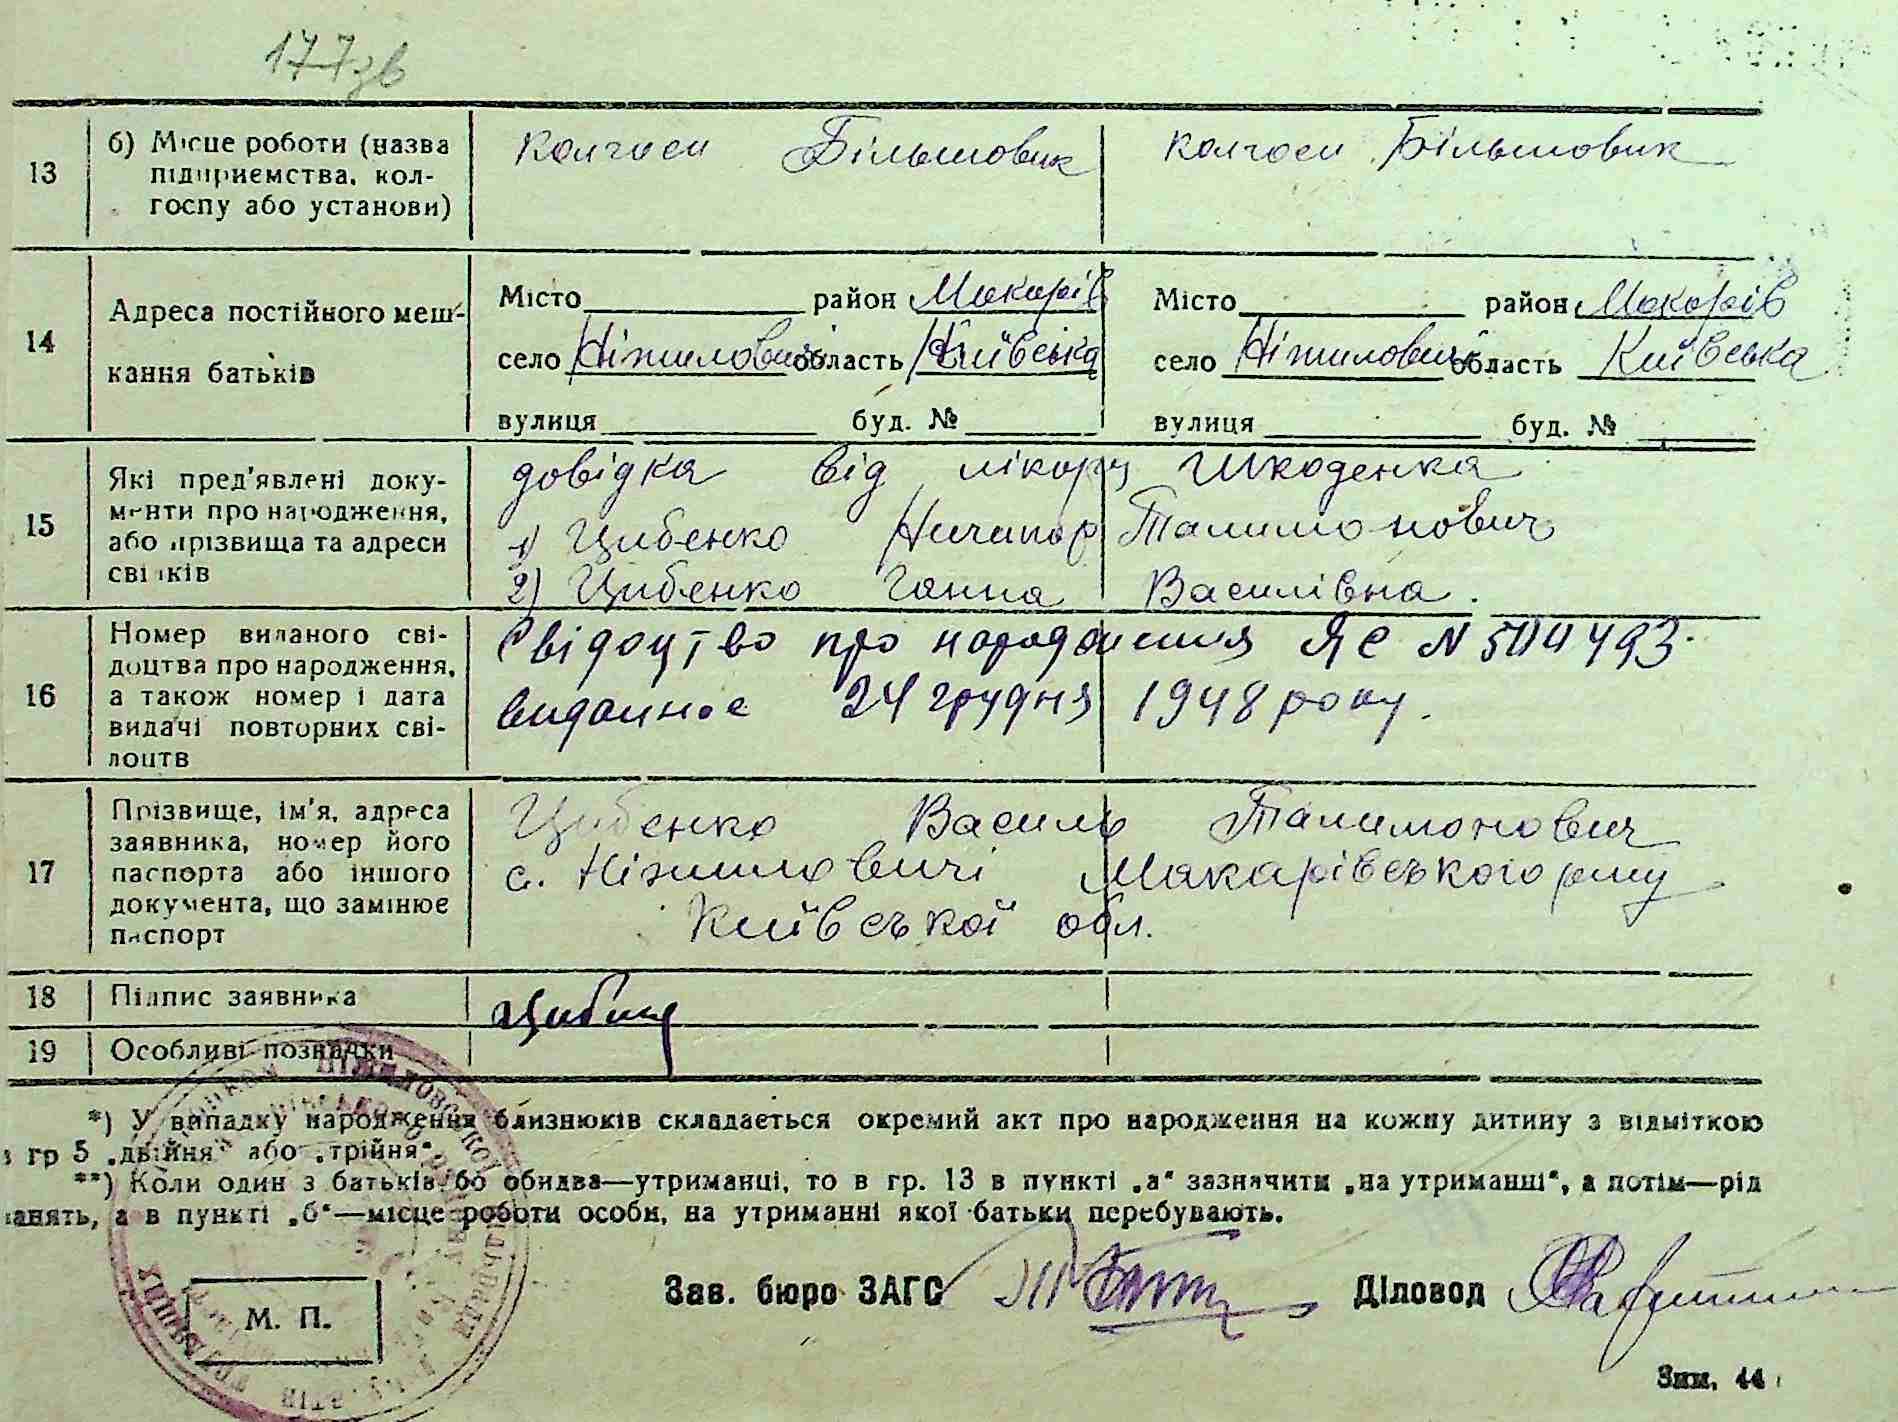 177зв
13
б) Місце роботи (назва
підприємства, кол-
госпу або установи)
колгосп Більшовик
колгосп Більшовик
14
Адреса постійного меш-
кання батьків
Місто район Макарів
село Ніжиловичі область Київська
вулиця буд. №
Місто район Макарів
село Ніжиловичі область Київська
вулиця буд. №
15
Які пред'явлені доку-
менти про народження,
або прізвища та адреси
свідків
довідка від лікару Шкоденка
1) Цибенко Ничипор Талимонович
2) Цибенко Ганна Василівна.
16
Номер виданого сві-
доцтва про народження,
а також номер і дата
видачі повторних сві-
доцтв
Свідоцтво про народження ЯС N
виданное 24 грудня 1948 року.
17
Прізвище, ім'я, адреса
заявника, номер його
паспорта або іншого
документа, що замінює
паспорт
Цибенко Василь Талимонович
с. Ніжиловичі Макарівського р-ну
Київської обл.
18
Підпис заявника
19
Особливі познадки
*) У випадку народження близнюків складається окремий акт про народження на кожну дитину з відміткою
в гр 5 „двійня" або „трійня".
**) Коли один з батьків бо обидва—утриманці, то в гр. 13 в пункті „а" зазначити „на утриманні", а потім—рід
занять, а в пункті „б"—місце роботи особи, на утриманні якої батьки перебувають.
Зав. бюро ЗАГС
Діловод
М. П.
Зим. 44